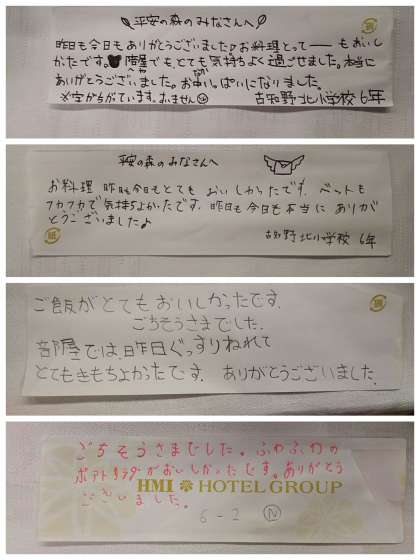 平安の森のみなさんへ
昨日も今日もありがとうございました♪お料理とってーーもおいし
かたです。部屋でもとても気持ちよく過ごせました。本当に
ありがとうございました。お中いっぱいになりました。
※字がちがています。すいません
古知野北小学校 6年
平安の森のみなさんへ
お料理 昨日も今日もとても おいしかったです。ベットも
フカフカで気持ちよかったです。昨日も今日も本当に ありが
とうございました♪
古知野北小学校 6年
紙
ご飯がとてもおいしかったです。
ごちそうさまでした。
部屋では、昨日ぐっすりねれて
とてもきもちよかったです。ありがとうございました。
ごちそうさまでした。ふわふわの
ポテトサラダがおいしかったです。ありがとう
ございました。
HMI HOTEL GROUP
6-2 N